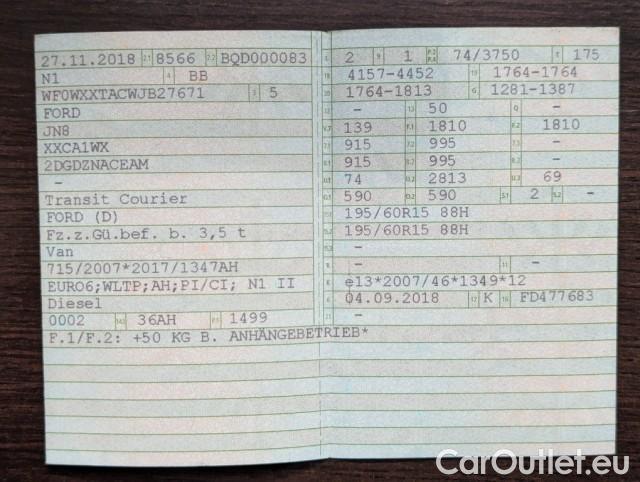 27.11.2018 2.1 8566 2.2 BQD000083
N1 4 BB
WF0WXXTACWJB27671 3 5
FORD
JN8
XXCA1WX
2DGDZNACEAM
–
Transit Courier
FORD (D)
Fz.z.Gü.bef. b. 3,5 t
Van
715/2007*2017/1347AH
EURO6;WLTP;AH;PI/CI; N1 II
Diesel
0002 14.1 36AH P.1 1499
F.1/F.2: +50 KG B. ANHÄNGEBETRIEB*
2 9 1 P.2 P.4 74/3750 T 175
18 4157-4452 19 1764-1764
20 1764-1813 G 1281-1387
12 – 13 50 Q –
V.7 139 F.1 1810 F.2 1810
7.1 915 7.2 995 7.3 –
8.1 915 8.2 995 8.3 –
U.1 74 U.2 2813 U.3 69
O.1 590 O.2 590 S.1 2 S.2 –
15.1 195/60R15 88H
15.2 195/60R15 88H
15.3 –
R – 11 –
K e13*2007/46*1349*12
6 04.09.2018 17 K 16 FD477683
21 –
CarOutlet.eu